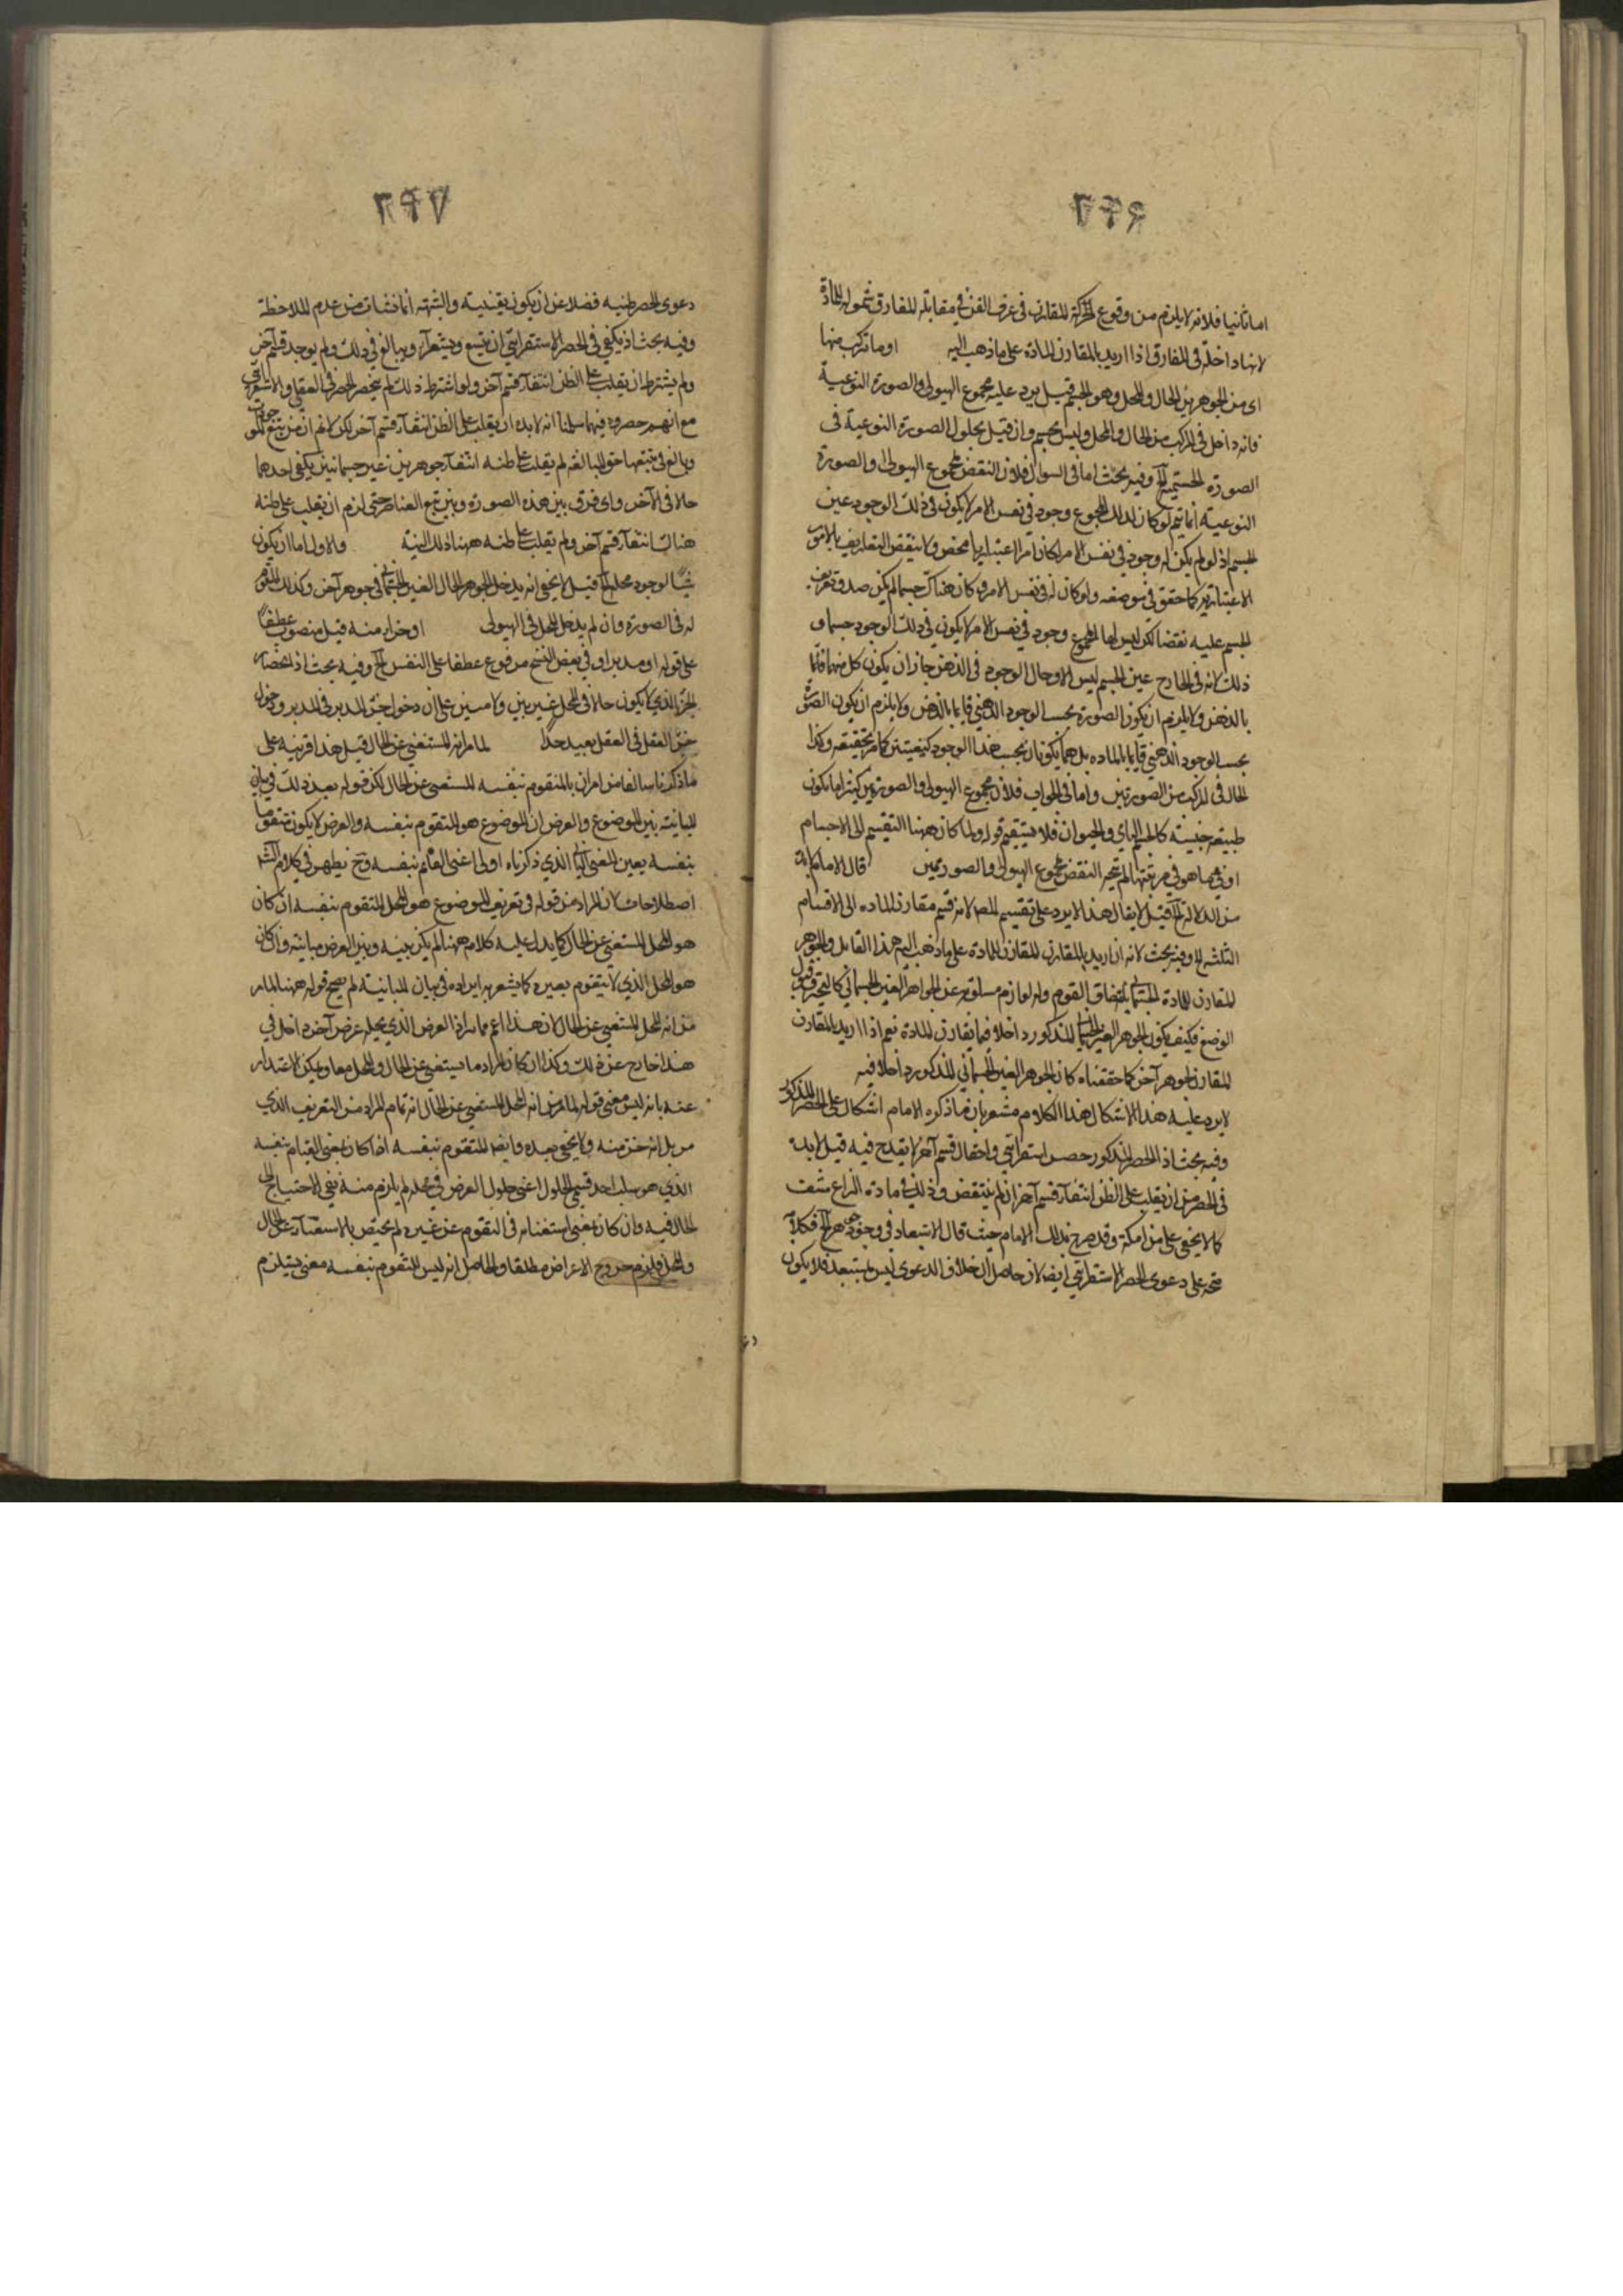 اما ثانيا فلانه لا يلزم من وقوع الحركة المقارن في عرف الفن في مقابلة المفارق شموله المادة
لانها داخلة في المفارق اذا اريد بالمقارن المادة على ما ذهب اليه او ما تركب منها
اى من الجوهرين الحال والمحل وهو الجسم قيل يرد عليه مجموع الهيولى والصورة النوعية
فانه داخل في المركب من الحال والمحل وليس بجسم وان قيل بحلول الصورة النوعية فى
الصورة الجسمية الخ وفيه بحث اما في السوال فلان النقض بمجموع الهيولى والصورة
النوعية انما يتم لو كان لذلك المجموع وجود في نفس الامر لا يكون في ذلك الوجود عين
الجسم اذ لو لم يكن له وجود في نفس الامر لكان امرا اعتباريا محض ولا ينتقض التعاريف بالامور
الاعتبارية كما حقق في موضعه ولو كان له في نفس الامر وكان هناك جسما لم يكن صدق تعريف
الجسم عليه نقضا لكن ليس لهذا المجموع وجود في نفس الامر لا يكون في ذلك الوجود جسما و
ذلك لانه في الخارج عين الجسم ليس الا وحال الوجود في الذهن جاز ان يكون كل منهما قائما
بالذهن ولا يلزم ان يكون الصورة بحسب الوجود الذهني قائما بالذهن ولا يلزم ان يكون الصورة
بحسب الوجود الذهني قائما بالمادة بل هما يكونان بحسب هذا الوجود كيفيتين كما مر تحقيقه وكذا
الحال في المركب من الصورتين واما في الجواب فلان مجموع الهيولى والصورتين كثيرا ما يكون
طبيعة جنسية كالجسم النامي والحيوان فلا يستقيم قوله ولما كان ههنا التقسيم الى الاجسام
او في ما هو في مرتبتها لم يتجه النقض بمجموع الهيولى والصورتين قال الامام لا بد
من الدلالة الخ قيل لا يقال هذا لا يرد على تقسيم المص لانه قسم مقارن المادة الى الاقسام
الثلثة الخ وفيه بحث لانه ان اريد بالمقارن المقارن للمادة على ما ذهب اليه هذا القايل والجوهر
المقارن للمادة الجسماني باتفاق القوم وله لوازم مسلوبة عن الجواهر الغير الجسماني كالتحيز وقبول
الوضع فكيف يكون الجوهر الغير الجسماني المذكور داخلا فيما يقارن المادة نعم اذا اريد بالمقارن
المقارن لجوهر آخر كما حققناه كان الجوهر الغير الجسماني المذكور داخلا فيه
لا يرد عليه هذا الاشكال هذا الكلام مشعر بان ما ذكره الامام اشكال على الحصر المذكور
وفيه بحث اذ الحصر المذكور حصر استقرائي واحتمال قسم آخر لا يقدح فيه قيل لا بد
في الحصر من ان يغلب على الظن انتفاء قسم آخر ان لم ينتقض وذلك في مادة النزاع منتف
كما لا يخفى على من امكنه وقد صرح بذلك الامام حيث قال الاستبعاد في وجود جوهر الخ فكلامه
متجه على دعوى الحصر الاستقرائي ايضا لان حاصل ان خلاف الدعوى ليس بمستبعد فلا يكون
دعوى الحصر ظنيه فضلا عن ان يكون يقينية والشبهة انما نشات من عدم الملاحظة
وفيه بحث اذ يكفي في الحصر الاستقرائي ان يتتبع ويستقرأ ويبالغ في ذلك ولم يوجد قسم آخر
ولم يشترط ان يغلب على الظن انتفاء قسم آخر ولو اشترط ذلك لم ينحصر الحصر في العقلي والاستقرائي
مع انهم حصروه فيهما سلمنا انه لا بد ان يغلب على الظن انتفاء قسم آخر لكن لا نم ان من تتبع الموجودات
وبالغ في تتبعها حق المبالغة لم يغلب على ظنه انتفاء جوهرين غير جسمانيين يكفي احدهما
حالا في الآخر واى فرق بين هذه الصورة وبين تتبع العناصر حتى لزم ان يغلب على ظنه
هناك انتفاء قسم آخر ولم يغلب على ظنه ههنا ذلك البتة والاول اما ان يكون
شيئا لوجود محله الخ قيل لا يخفى انه يدخل الجوهر الحال الغير الجسماني في جوهر آخر وكذلك المقوم
له في الصورة وان لم يدخل المحل في الهيولى او جزء منه قيل منصوب عطفا
على قوله او مدبرا وفي بعض النسخ مرفوع عطفا على النفس الخ وفيه بحث اذ انحصار
الجزء الذي لا يكون حالا في المحل غير بين ولا مبين على ان دخول جزء المدبر في المدبر ودخول
جزء العقل في العقل بعيد جدا لما مر انه المستغني عن الحال قيل هذا قرينة على
ما ذكرنا سالفا من امران بالمتقوم بنفسه المستغني عن الحال لكن قوله بعد ذلك في بيان
المباينة بين الموضوع والعرض ان الموضوع هو المتقوم بنفسه والعرض لا يكون متقوما
بنفسه يعين المعنى الثاني الذي ذكرناه اولا اعني القائم بنفسه وح يظهر في كلام الش
اصطلاحات لان المراد من قوله في تعريف الموضوع هو المحل المتقوم بنفسه ان كان
هو المحل المستغني عن الحال كما يدل عليه كلامه ههنا لم يكن بينه وبين العرض مباينة وان كان
هو المحل الذي لا يتقوم بغيره كما يشعر به ايراده في بيان المباينة لم يصح قوله ههنا لما مر
من انه المحل المستغني عن الحال لان هذا اعم مما مر اذ العرض الذي يحله عرض آخر داخل في
هذا خارج عن ذلك وكذا ان كان المراد ما يستغني عن الحال والمحل معا ويمكن الاعتذار
عنه بانه ليس معنى قوله لما مر من انه المحل المستغني عن الحال انه تمام المراد من التعريف الذي
مر بل انه جزء منه ولا يخفى بعده وايضا المتقوم بنفسه اذا كان بمعنى القيام بنفسه
الذي هو سلب احد قسمي الحلول اعني حلول العرض في محله لم يلزم منه نفي الاحتياج الى
الحال فيه وان كان بمعنى استغنائه في التقوم عن غيره لم يختص بالاستغناء عن الحال
والمحل فيلزم خروج الاعراض مطلقا والحاصل انه ليس للمتقوم بنفسه معنى يستلزم